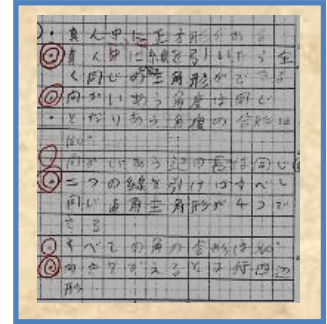 ・真ん中に正方形がある
・真ん中に線を引いたら全
く同じの三角形ができる
・向かいあう角度は同じ
・となりあう角度の合計は
180°
向かいあう辺の長さは同じ
・二つの線を引けばすべて
同じ直角三角形が4つで
きる
・すべての角の合計は360°
・向きをかえると平行四辺
形